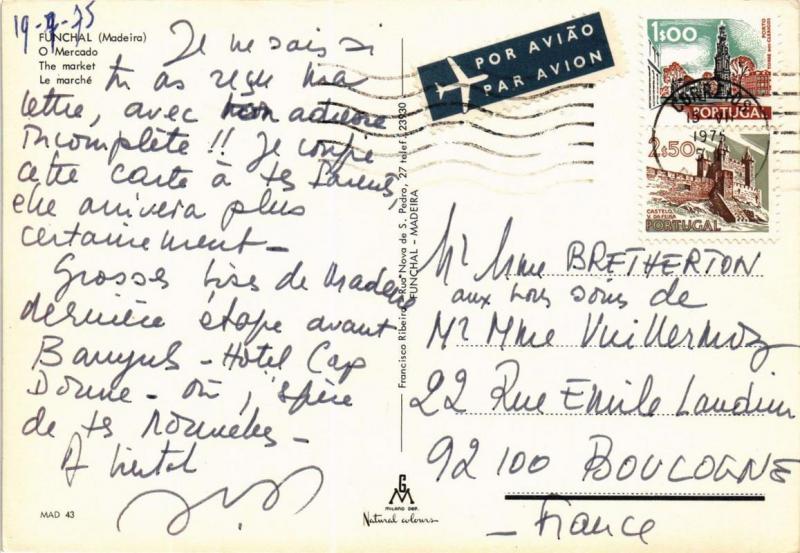 19-7-75
FUNCHAL (Madeira)
O Mercado
The market
Le marché
Je ne sais si
tu as reçu ma
lettre, avec mon adresse
incomplète !! Je confie
cette carte à tes Parents,
elle arrivera plus
certainement -
Grosses bises de Madère
dernière étape avant
Banyuls - Hotel Cap
Doune - où j'espère
de tes nouvelles -
A bientôt
MAD 43
POR AVIÃO
PAR AVION
1$00
PORTO
TORRE DOS CLÉRIGOS
PORTUGAL
1975
2$50
CASTELO
V. DA FEIRA
PORTUGAL
Francisco Ribeiro, Rua Nova de S. Pedro, 27 telef. 23930
FUNCHAL - MADEIRA
Mr Mme BRETHERTON
aux bons soins de
Mr Mme Vuillermoz
22 Rue Emile Landrin
92100 BOULOGNE
- France
GM
MILANO DEP.
Natural colours